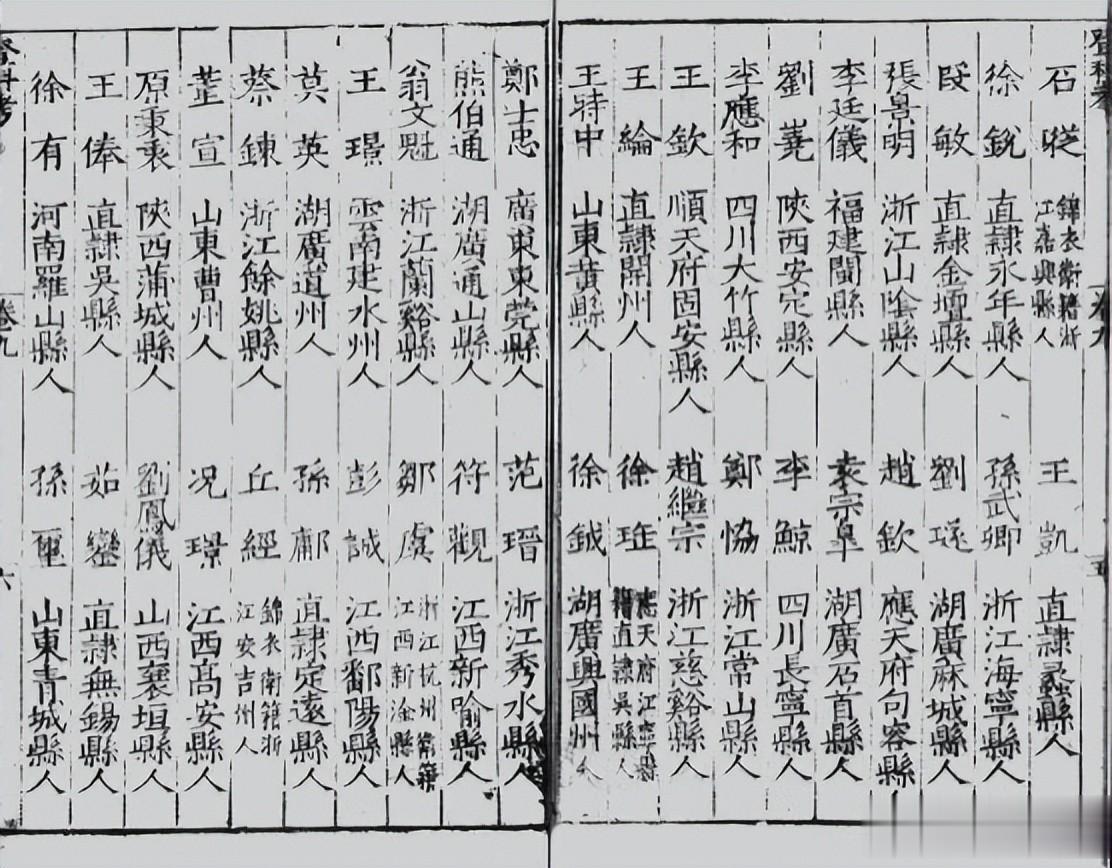 登科考 卷九 五
石㻐 錦衣衛籍浙江嘉興縣人 王凱 直隷蠡縣人
徐銳 直隷永年縣人 孫武卿 浙江海寧縣人
段敏 直隷金壇縣人 劉璲 湖廣麻城縣人
張景明 浙江山陰縣人 趙欽 應天府句容縣
李廷儀 福建閩縣人 袁宗臯 湖廣石首縣人
劉堯 陝西安定縣人 李鯨 四川長寧縣人
李應和 四川大竹縣人 鄭恊 浙江常山縣人
王欽 順天府固安縣人 趙繼宗 浙江慈谿縣人
王綸 直隷開州人 徐珤 應天府江寧縣籍直隷吳縣人
王時中 山東黃縣人 徐鉞 湖廣興國州人
鄭士忠 廣東東莞縣人 范瑨 浙江秀水縣人
熊伯通 湖廣通山縣人 符觀 江西新喻縣人
翁文魁 浙江蘭谿縣人 鄒虞 浙江杭州衞籍江西新淦縣人
王璟 雲南建水州人 彭誠 江西鄱陽縣人
莫英 湖廣道州人 孫鄘 直隷定遠縣人
蔡鍊 浙江餘姚縣人 丘經 錦衣衛籍浙江安吉州人
董宣 山東曹州人 况璟 江西高安縣人
原秉衷 陝西蒲城縣人 劉鳳儀 山西襄垣縣人
王俸 直隷吳縣人 茹鑾 直隷無錫縣人
徐有 河南羅山縣人 孫璽 山東青城縣人
登科考 卷九 六